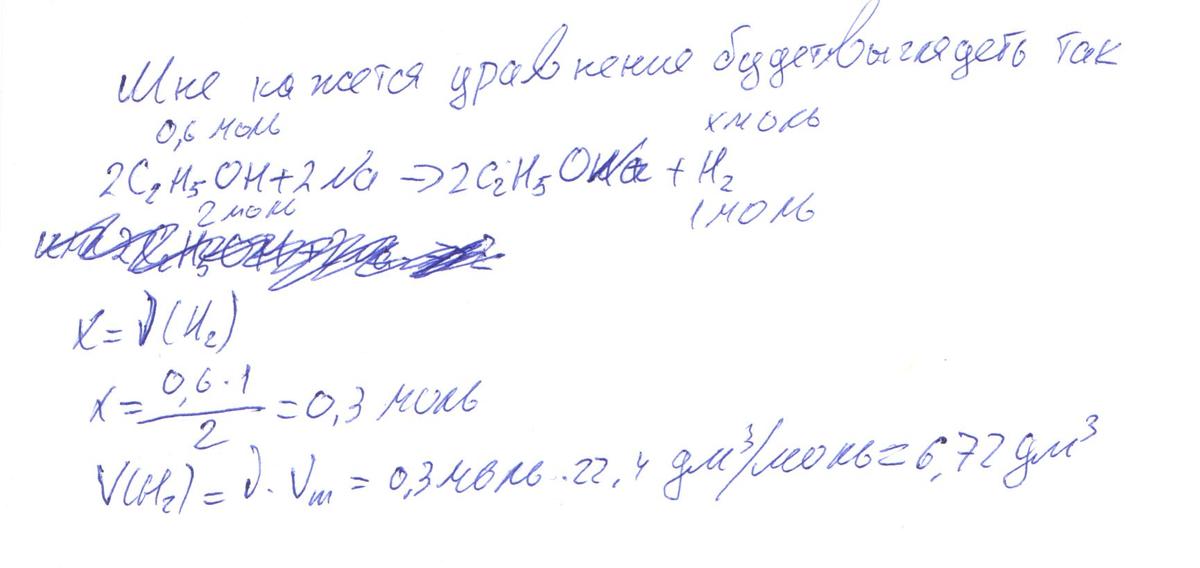 Мне кажется уравнение будет выглядеть так
0,6 моль х моль
2C₂H₅OH + 2Na → 2C₂H₅ONa + H₂
2 моль 1 моль
x = ν(H₂)
x = 0,6 · 1 / 2 = 0,3 моль
V(H₂) = ν · Vm = 0,3 моль · 22,4 дм³/моль = 6,72 дм³